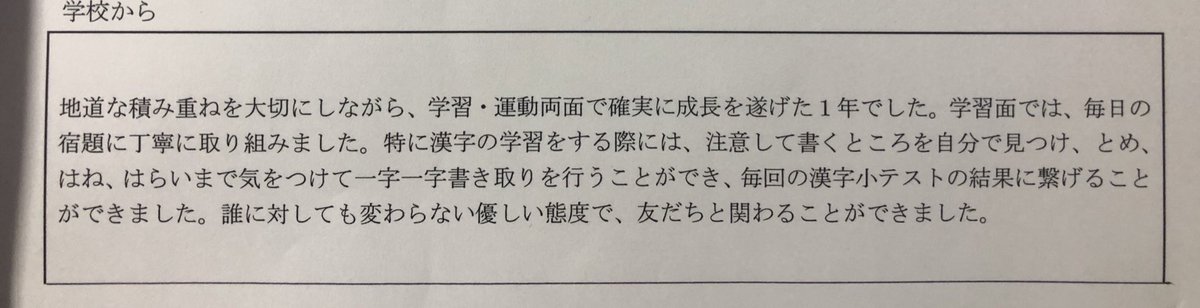 学校から
地道な積み重ねを大切にしながら、学習・運動両面で確実に成長を遂げた1年でした。学習面では、毎日の
宿題に丁寧に取り組みました。特に漢字の学習をする際には、注意して書くところを自分で見つけ、とめ、
はね、はらいまで気をつけて一字一字書き取りを行うことができ、毎回の漢字小テストの結果に繋げること
ができました。誰に対しても変わらない優しい態度で、友だちと関わることができました。